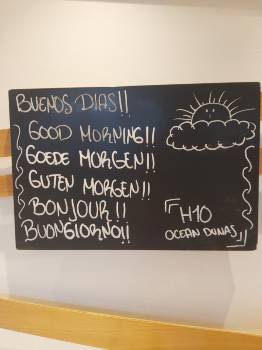 BUENOS DIAS!!
GOOD MORNING!!
GOEDE MORGEN!!
GUTEN MORGEN!!
BONJOUR!!
BUONGIORNO!!
H10
OCEAN DUNAS